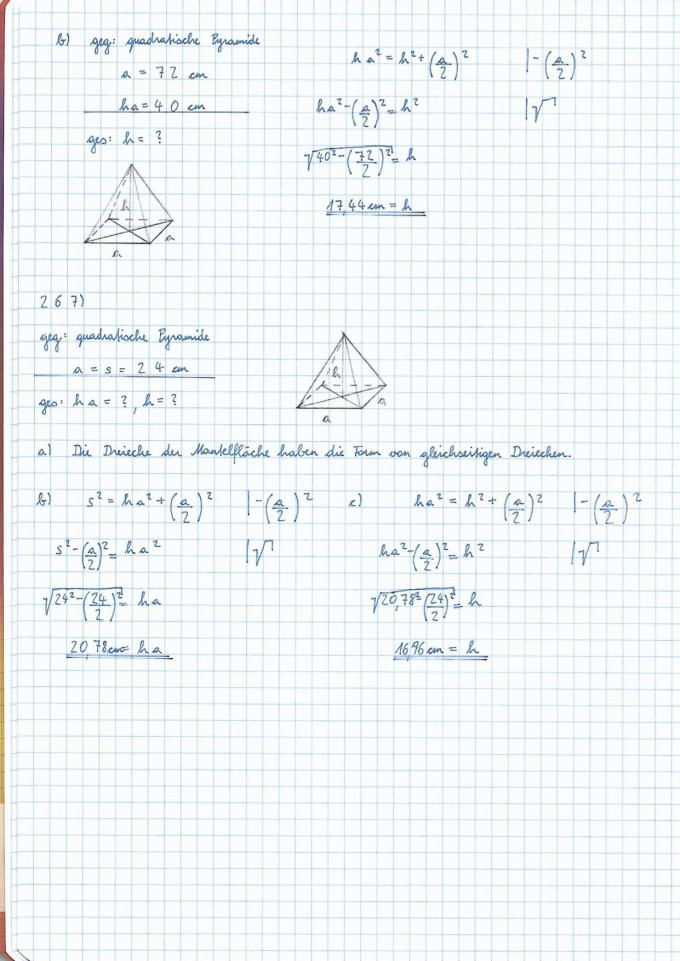 b) geg: quadratische Pyramide
a = 72 cm
ha = 40 cm
ges: h = ?
h
a
a
ha² = h² + (a/2)² | - (a/2)²
ha² - (a/2)² = h² | √
√(40² - (72/2)²) = h
17,44 cm = h
267)
geg: quadratische Pyramide
a = s = 24 cm
ges: ha = ?, h = ?
h
a
a
a) Die Dreiecke der Mantelfläche haben die Form von gleichseitigen Dreiecken.
b) s² = ha² + (a/2)² | - (a/2)²
s² - (a/2)² = ha² | √
√(24² - (24/2)²) = ha
20,78 cm = ha
c) ha² = h² + (a/2)² | - (a/2)²
ha² - (a/2)² = h² | √
√(20,78² - (24/2)²) = h
16,96 cm = h